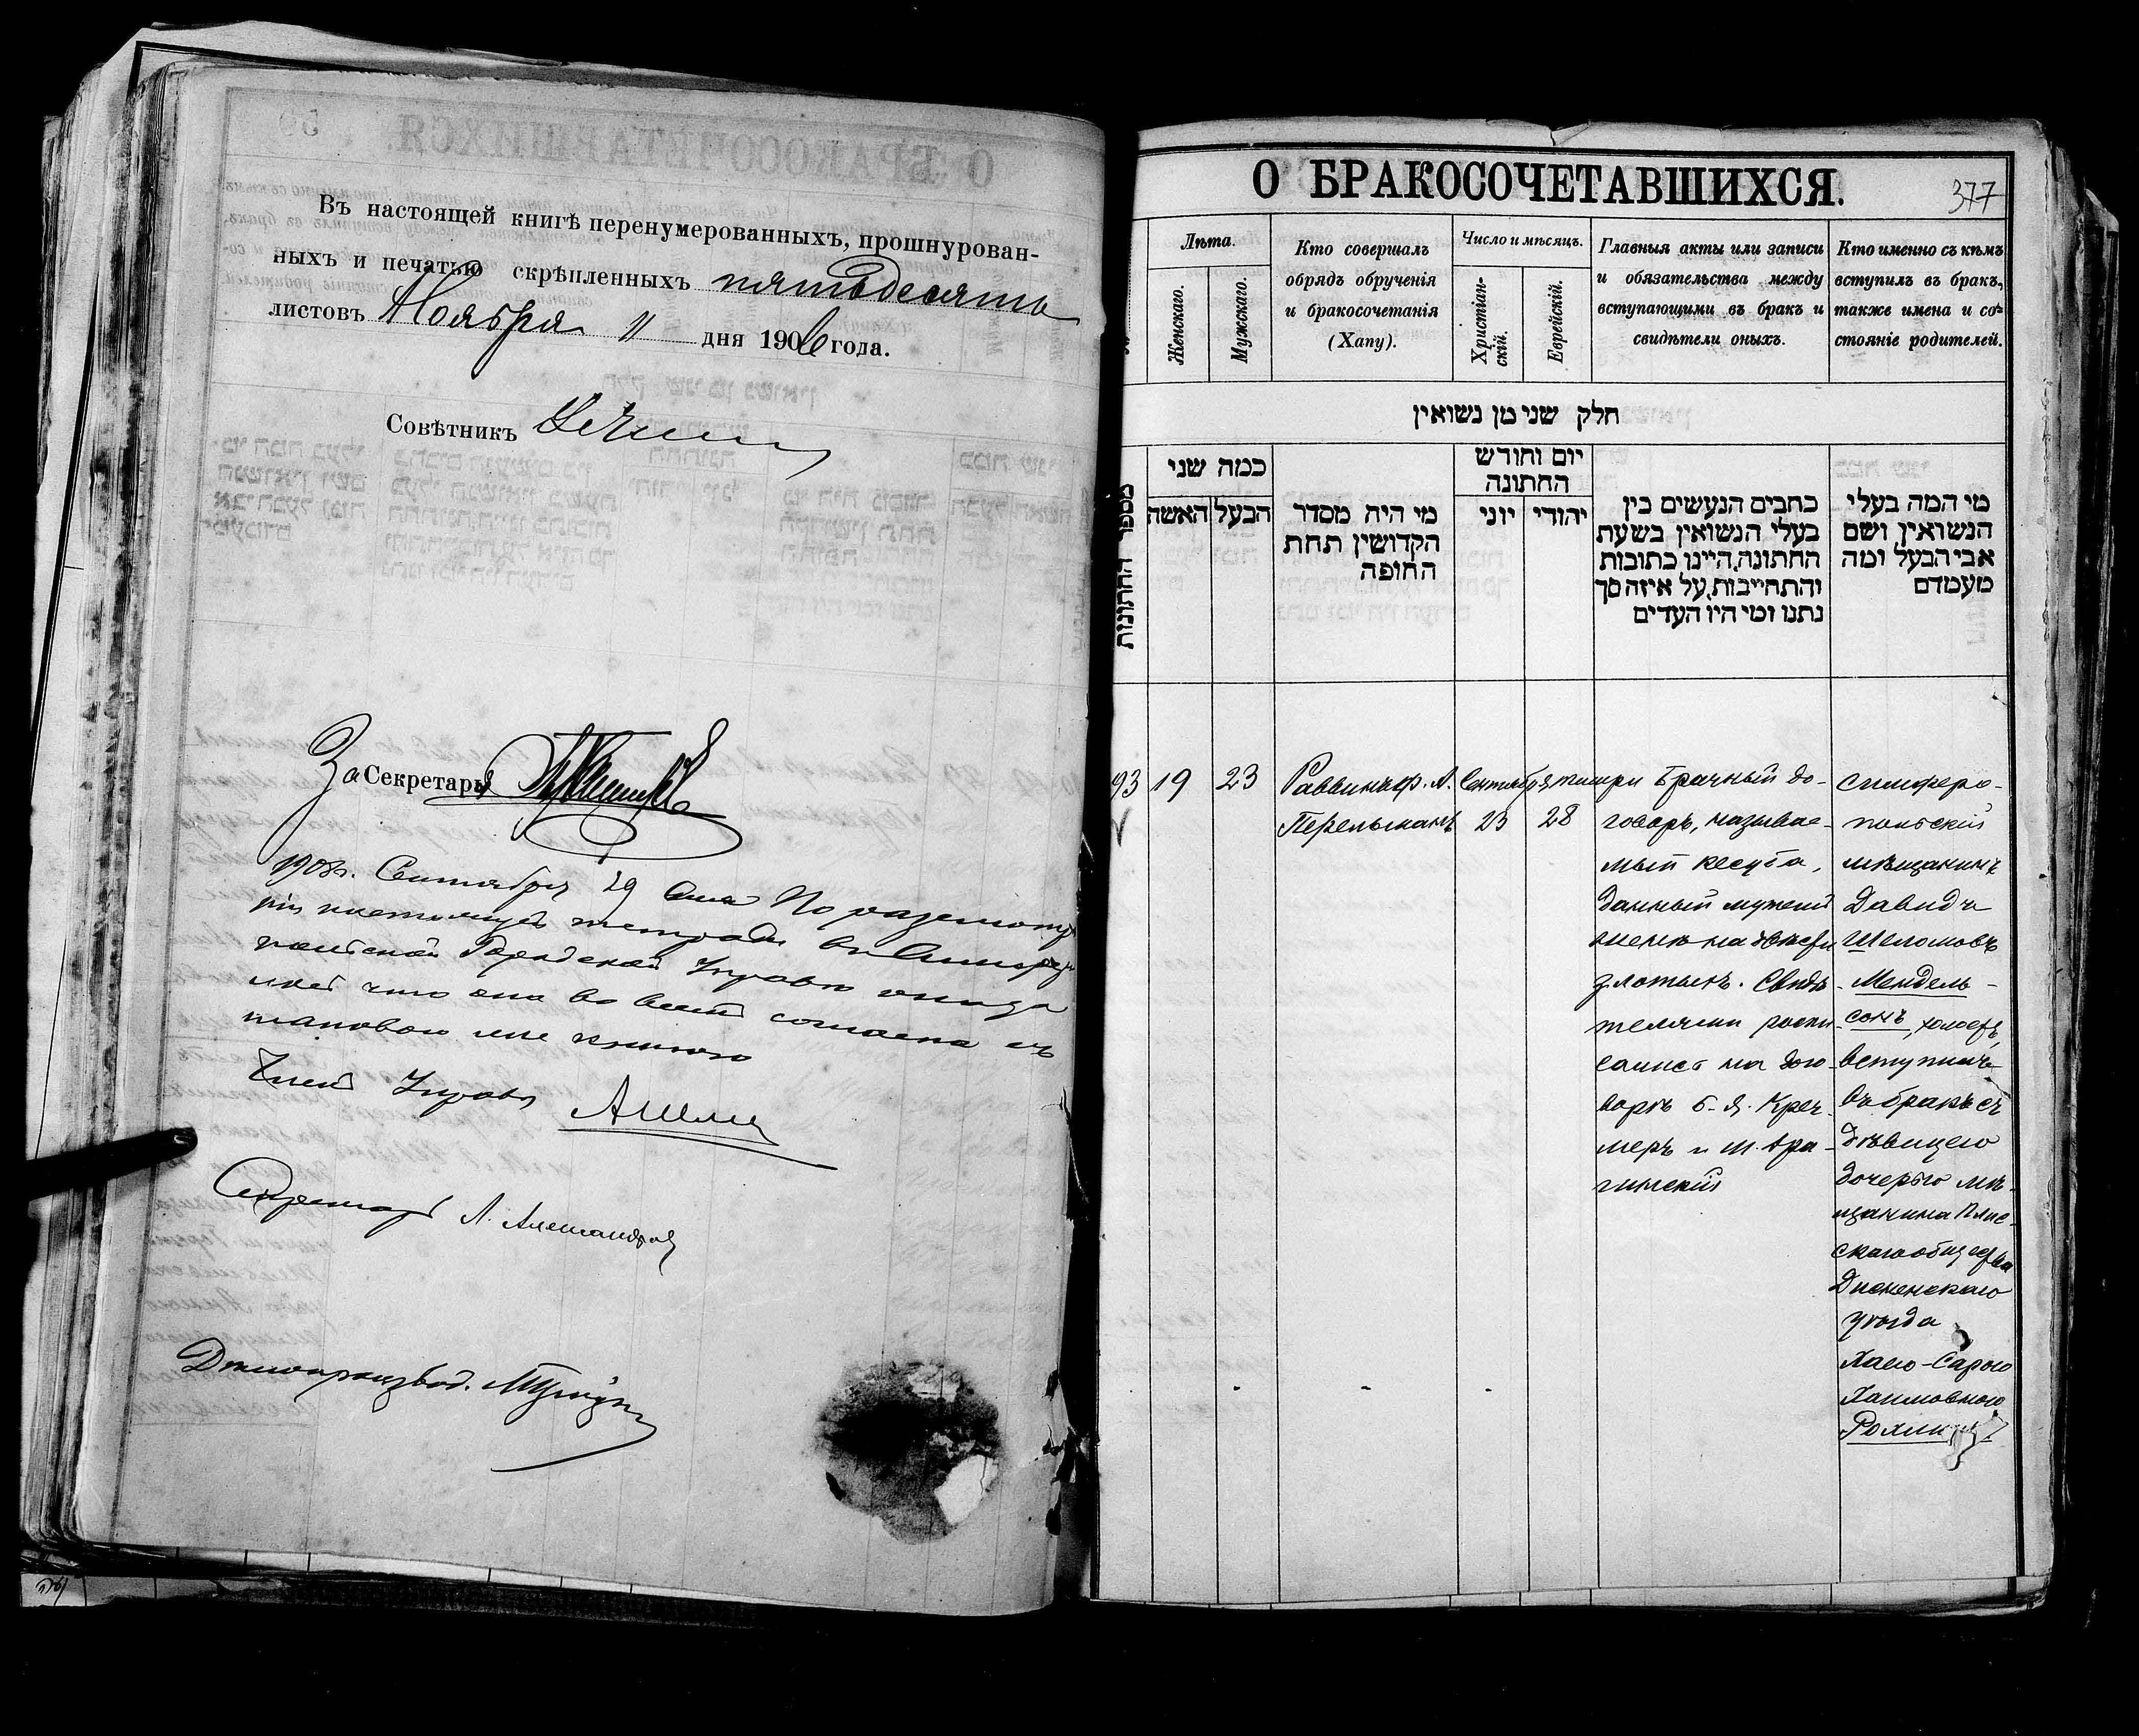 Въ настоящей книгѣ перенумерованныхъ, прошнурован-
ныхъ и печатью скрѣпленныхъ пятьдесятъ
листовъ Ноября 11 дня 1906 года.
Совѣтникъ
За Секретаря
1908 г. Сентября 29 дня По разсмотрѣ
ніи настоящей тетради въ Симферо
польской Городской Управѣ оказа
лось что она во всемъ согласна съ
таковою же книгою
Членъ Управы
Секретарь Л. Александровъ
Дѣлопроизвод.
О БРАКОСОЧЕТАВШИХСЯ.
377
Лѣта.
Женскаго.
Мужскаго.
Кто совершалъ
обрядъ обрученія
и бракосочетанія
(Хапу).
Число и мѣсяцъ.
Христіан-
скій.
Еврейскій.
Главныя акты или записи
и обязательства между
вступающими въ бракъ и
свидѣтели оныхъ.
Кто именно съ кѣмъ
вступилъ въ бракъ,
также имена и со-
стояніе родителей.
חלק שני מן נשואין
מספר החתונות
כמה שני
האשה
הבעל
מי היה מסדר
הקדושין תחת
החופה
יום וחודש
החתונה
יוני
יהודי
כתבים הנעשים בין
בעלי הנשואין בשעת
החתונה,היינו כתובות
והתחייבות,על איזה סך
נתנו ומי היו העדים
מי המה בעלי
הנשואין ושם
אבי הבעל ומה
מעמדם
93
19
23
Раввинъ Ф. Л.
Перельманъ
Сентября
23
тишри
28
Брачный до-
говоръ, называе-
мый кесуба,
данный мужемъ
женѣ на двѣсти
златыхъ. Свидѣ-
телями роспи-
сались на дого-
ворѣ Б. Я. Кре
меръ и Ш. Ара-
гинскій
симферо-
польскій
мѣщанинъ
Давидъ
Шеломовъ
Мендель-
сонъ, холостъ,
вступилъ
въ бракъ съ
дѣвицею
дочерью мѣ-
щанина Плис-
скаго общества
Дисненскаго
уѣзда
Хаею-Сарою
Хаимовною